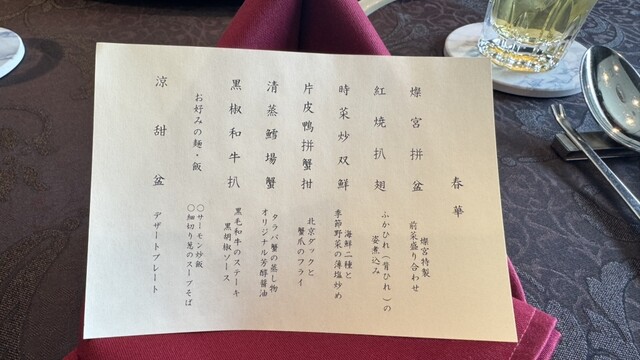 春華
燦宮拼盆
燦宮特製
前菜盛り合わせ
紅焼扒翅
ふかひれ（背ひれ）の
姿煮込み
時菜炒双鮮
海鮮二種と
季節野菜の薄塩炒め
片皮鴨拼蟹拑
北京ダックと
蟹爪のフライ
清蒸鱈場蟹
タラバ蟹の蒸し物
オリジナル芳醇醤油
黒椒和牛扒
黒毛和牛のステーキ
黒胡椒ソース
お好みの麺・飯
〇サーモン炒飯
〇細切り葱のスープそば
涼甜盆
デザートプレート